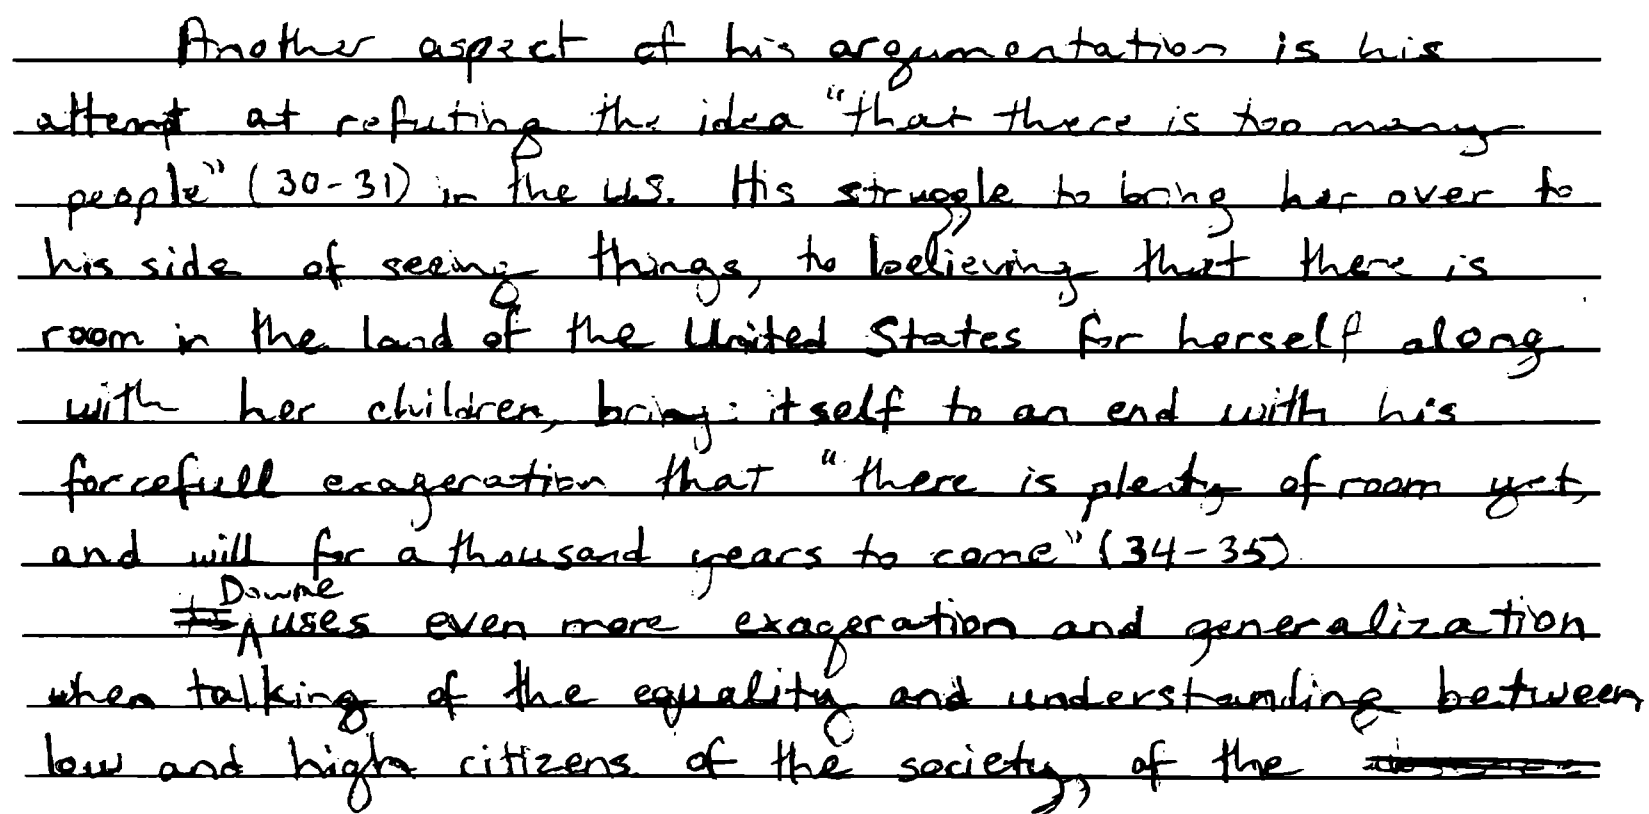 Another aspect of his argumentation is his
attempt at refuting the idea "that there is too many
people" (30-31) in the U.S. His struggle to bring her over to
his side of seeing things, to believing that there is
room in the land of the United States for herself along
with her children, brings itself to an end with his
forcefull exageration that "there is plenty of room yet,
and will for a thousand years to come" (34-35)
Downe
uses even more exageration and generalization
when talking of the equality and understanding between
low and high citizens of the society, of the